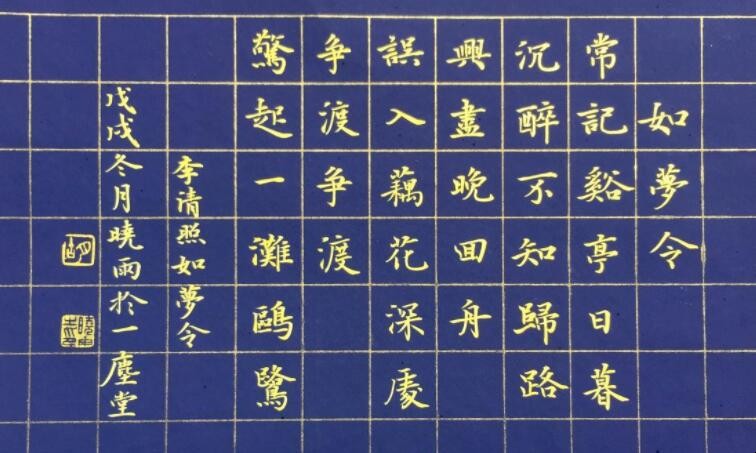 如夢令
常記谿亭日暮
沉醉不知歸路
興盡晚回舟
誤入藕花深處
爭渡爭渡
驚起一灘鷗鷺
李清照如夢令
戊戌冬月曉雨於一塵堂